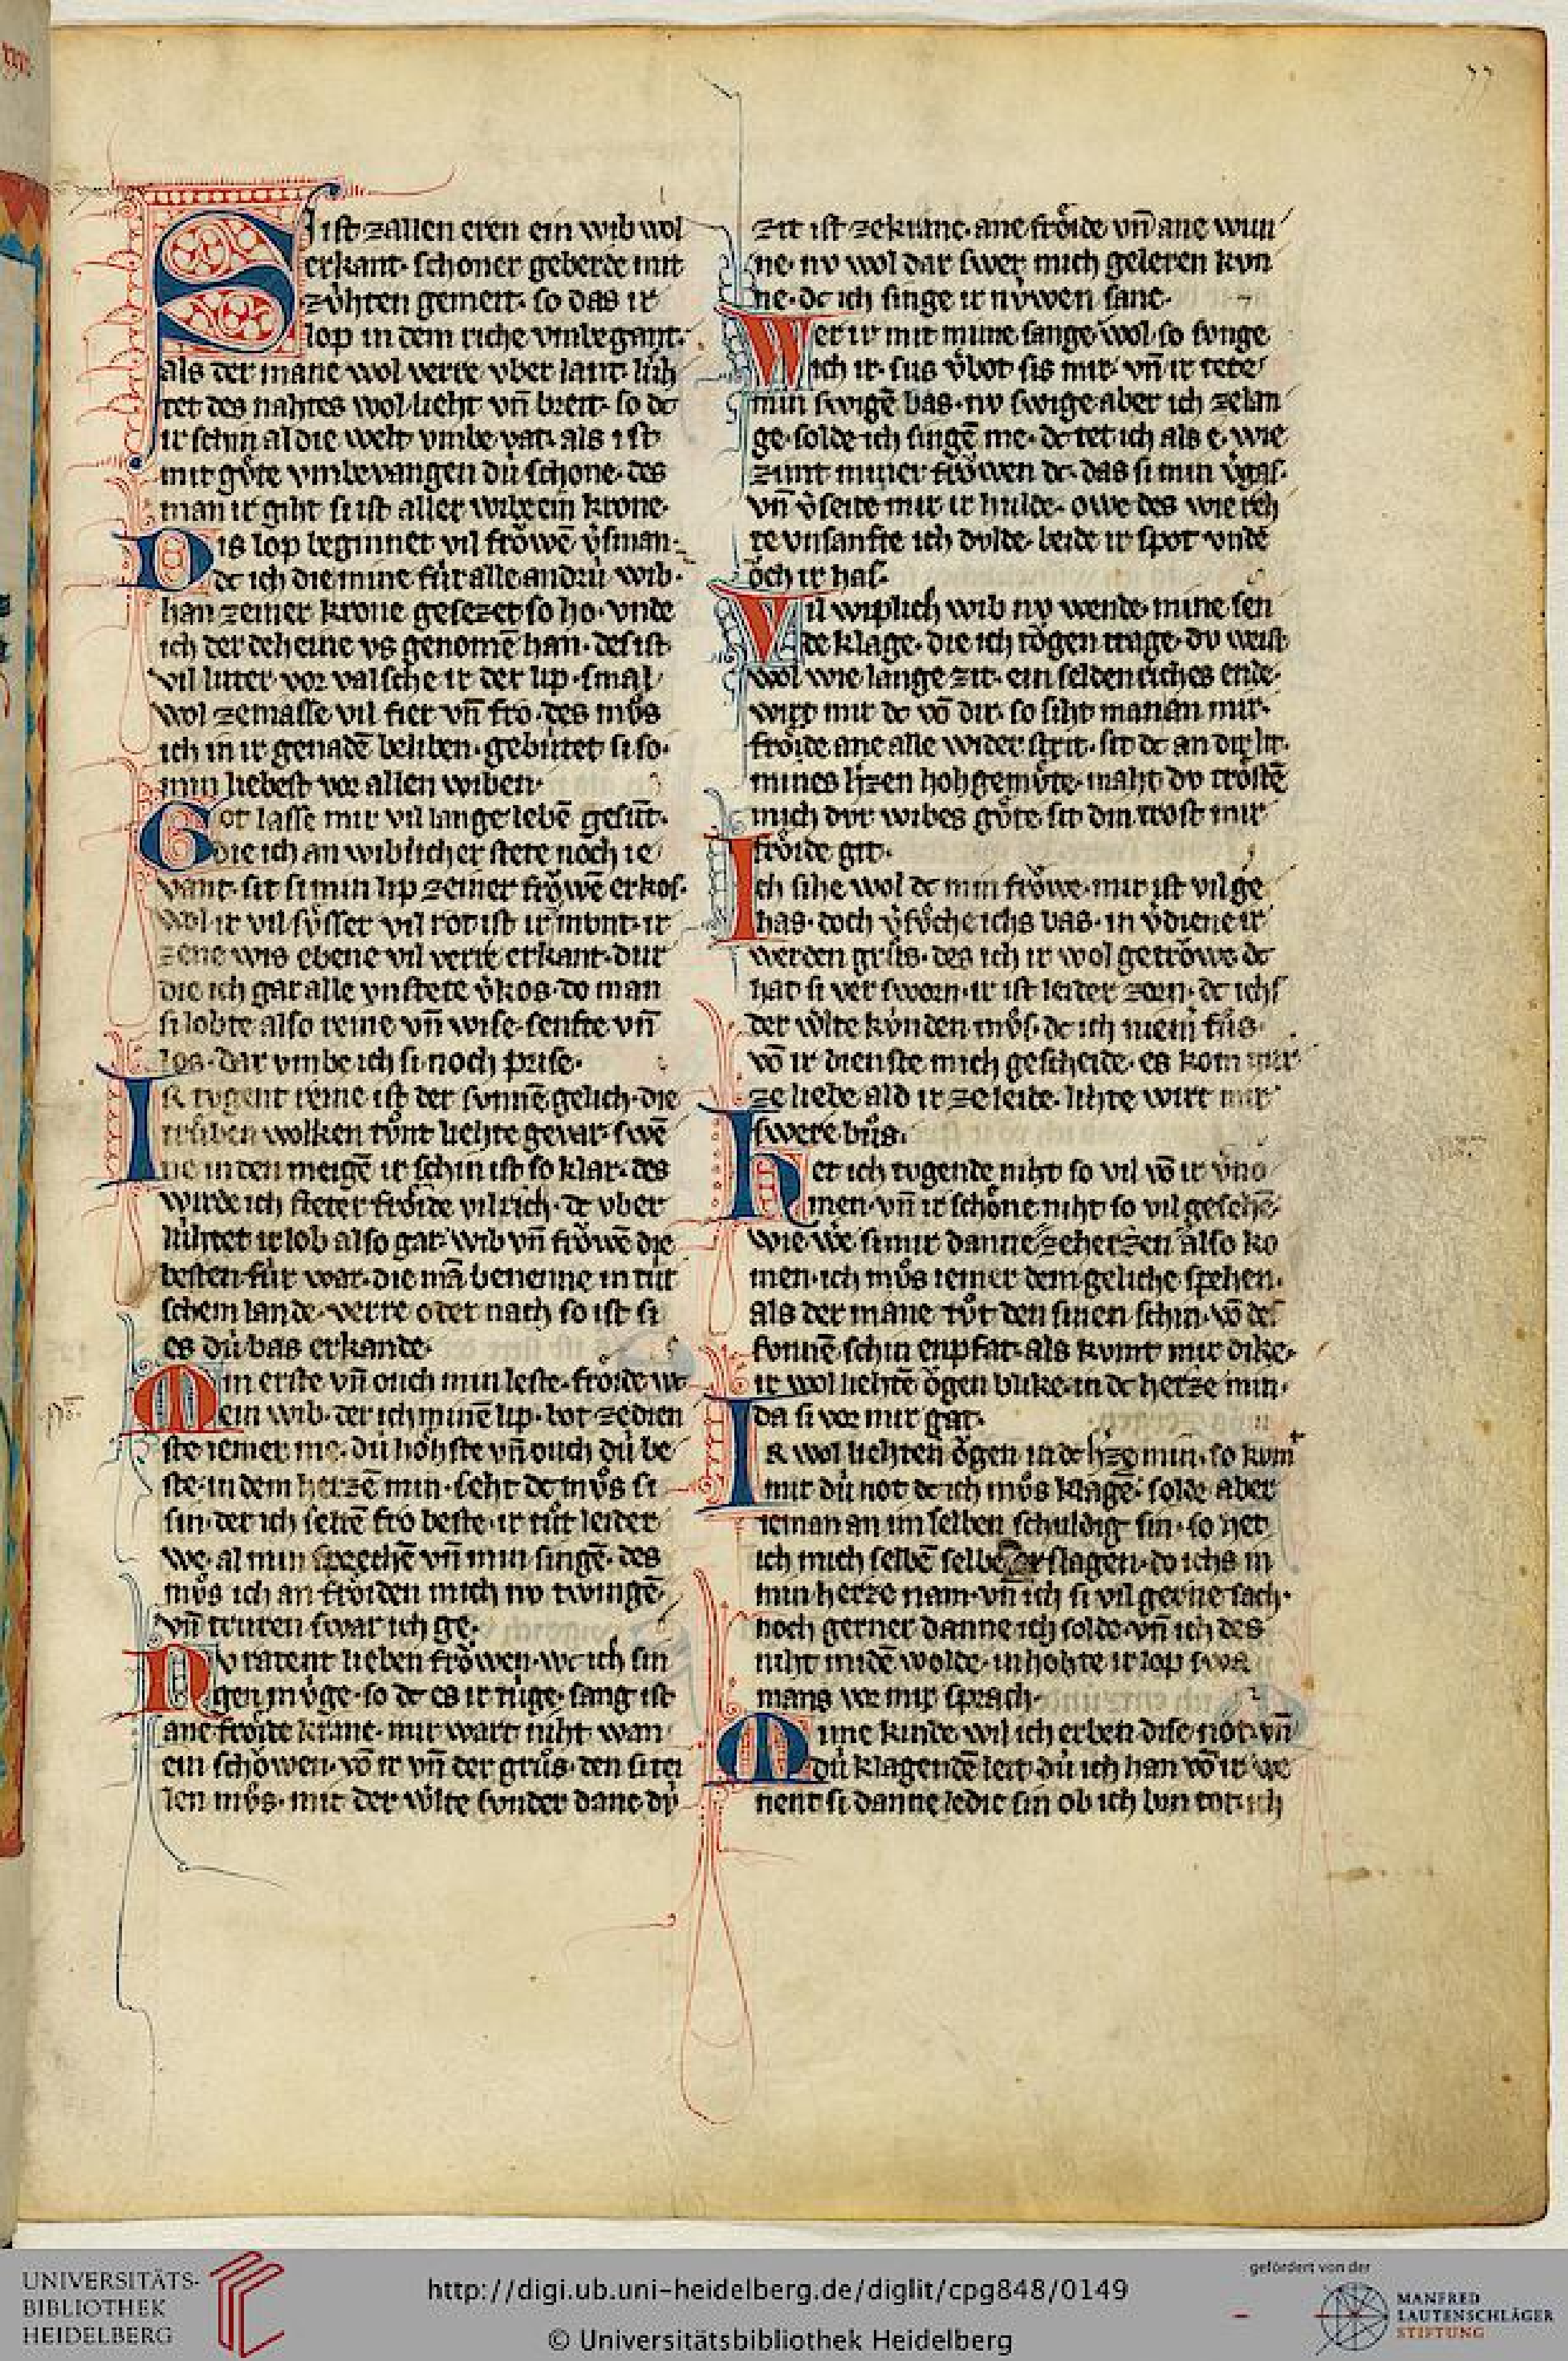 Si ist zallen eren ein wib wol
erkant· schoner geberde mit
zv̊hten gemeit· so das ir
lop in dem riche vmbe gant·
als der mane wol verre vber lant· lúh
tet des nahtes wol lieht vn̄ breit· so dc
ir schin al die welt vmbe vat· als ist
mit gv̊te vmbevangen dú schone· des
man ir giht si ist aller wibe ein krone·
Dis lop beginnet vil frȯwē v̾sman·
dc ich die mine für alle andrú wib·
han zeiner krone gesezet so ho· vnde
ich der deheine vs genomē han· des ist
vil luter vor valsche ir der lip· smal
wol ze masse vil fier vn̄ fro· des mv̊s
ich in ir genadē beliben· gebútet si so·
min liebest vor allen wiben·
Got lasse mir vil lange lebē gesūt·
die ich an wiblicher stete noch ie
vant· sit si min lip zeiner frȯwē erkos·
wol ir vil sv̊sser vil rot ist ir mvnt· ir
zene wis ebene vil verre erkant· dur
die ich gar alle vnstete v̾kos· do man
si lobte also reine vn̄ wise· senfte vn̄
los· dar vmbe ich si noch prise·
Ir tvgent reine ist der svnnē gelich· die
trv̊ben wolken tv̊nt liehte gevar· swē
ne in den meigē ir schin ist so klar· des
wirde ich steter frȯide vil rich· dc vber
lúhtet ir lob also gar· wib vn̄ frȯwē die
besten fúr war· die mā benenne in tút
schem lande· verre oder nach so ist si
es dú bas erkande·
Min erste vn̄ ouch min leste· frȯide w
ein wib· der ich minē lip· bot ze dien
ste iemer me· dú hȯhste vn̄ ouch dú be
ste· in dem herzē min· seht dc mv̊s si
sin· der ich seltē fro beste· ir tv̊t leider
we· al min sprechē vn̄ min singē· des
mv̊s ich an frȯiden mich nv twingē
vn̄ truren swar ich ge·
Nv ratent lieben frȯwen· wc ich sin
gen mv̊ge· so dc es ir túge· sang ist
ane frȯide kranc· mir wart niht wan
ein schȯwen· vō ir vn̄ der grv̊s· den si tei
len mv̊s· mit der wl̾te svnder danc· dv̊
zit ist ze kurne· ane frȯide vn̄ ane wun
ne· nv wol dar swer mich geleren kvn
ne· dc ich singe ir núwen sanc·
Wer ir mit mine sange wol· so svnge
ich ir· sus v̾bot sis mir· vn̄ ir tete
min swigē bas· nv swige aber ich zelan
ge· solde ich singē me· dc tet ich als e· wie
zimt miner frȯwen dc· das si min v̾gas·
vn̄ v̾seite mir ir hulde· owe des wie reh
te vnsanfte ich dvlde· beide ir spot vnde
ȯch ir has·
Vil wiplich wib nv wende· mine sen
de klage· die ich tȯgen trage· dv weist
wol wie lange zit· ein selden riches ende·
wirt mir dc vō dir· so siht man an mir·
frȯide ane alle wider strit· sit dc an dir lit·
mines h̾zen hohgemv̊te· maht dv trȯstē
mich dvr wibes gv̊te· sit din trost mir
frȯide git·
Ich sihe wol dc min frȯwe· mir ist vil ge
has· doch v̾sv̊che ichs bas· in v̾diene ir
werden grv̊s· des ich ir wol getrȯwe dc
hat si versworn· ir ist leider zorn· dc ichs
der wl̾te kúnden mv̊s· dc ich niem̾ fv̊s·
vō ir dienste mich gescheide· es kom mir
ze liebe ald ir ze leide· lihte wirt mir
swere bv̊s·
Het ich tvgende niht so vil vō ir v̾no
men· vn̄ ir schȯne niht so vil gesehē·
wie we si mir danne ze herzen also ko
men· ich mv̊s iemer dem geliche spehen·
als der mane tv̊t den sinen schin· vō des
svnnē schin enpfat· als kvmt mir dike·
ir wol liehtē ȯgen blike· in dc herze min·
da si vor mir gat·
Ir wol liehten ȯgen in dc h̾ze min· so kumt
mir dú not dc ich mv̊s klagē· solde aber
ieman an im selben schuldig sin· so het
ich mich selbē selbe erslagen· do ichs in
min herze nam· vn̄ ich si vil gerne sach·
noch gerner danne ich solde· vn̄ ich des
niht midē wolde· in hohte ir lop swa
mans vor mir sprach·
Mime kinde wil ich erben dise not· vn̄
dú klagendē leit· dú ich han vō ir· we
nent si danne ledic sin ob ich bin tot· ich
UNIVERSITÄTS-
BIBLIOTHEK
HEIDELBERG
http://digi.ub.uni-heidelberg.de/diglit/cpg848/0149
© Universitätsbibliothek Heidelberg
gefördert von der
MANFRED
LAUTENSCHLÄGER
STIFTUNG